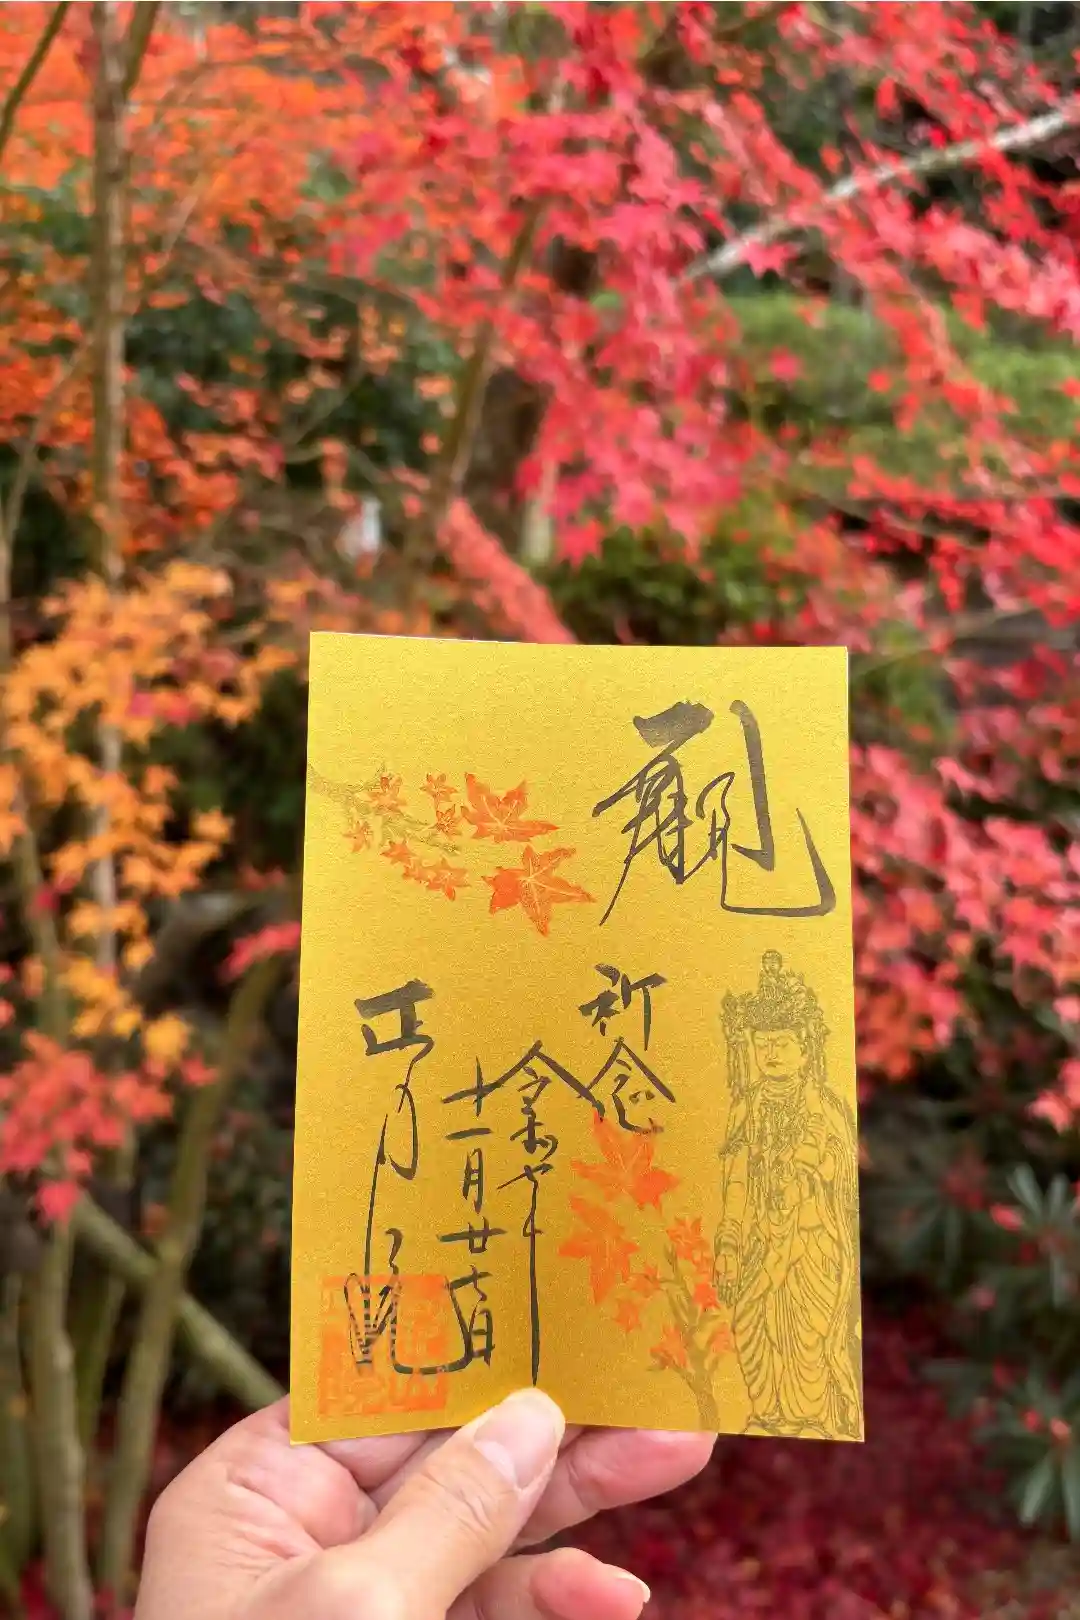 祈念
令和七年
十一月廿七日
正月堂